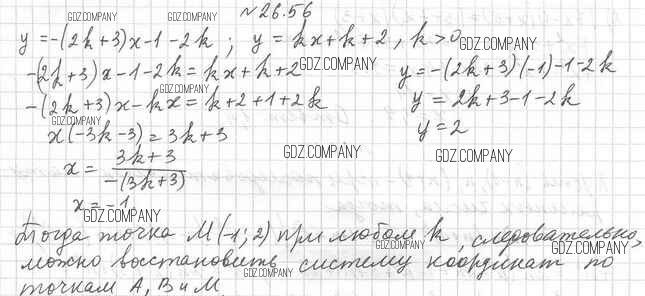 №26.56
y = -(2k+3)x-1-2k ; y = kx+k+2 , k>0
-(2k+3)x-1-2k = kx+k+2
y = -(2k+3)(-1)-1-2k
-(2k+3)x-kx = k+2+1+2k
y = 2k+3-1-2k
x(-3k-3) = 3k+3
y = 2
x = 3k+3 / -(3k+3)
x = -1
Тогда точка M(-1; 2) при любом k, следовательно,
можно восстановить систему координат по
точкам A, B и M.
GDZ.COMPANY
GDZ.COMPANY
GDZ.COMPANY
GDZ.COMPANY
GDZ.COMPANY
GDZ.COMPANY
GDZ.COMPANY
GDZ.COMPANY
GDZ.COMPANY
GDZ.COMPANY
GDZ.COMPANY
GDZ.COMPANY